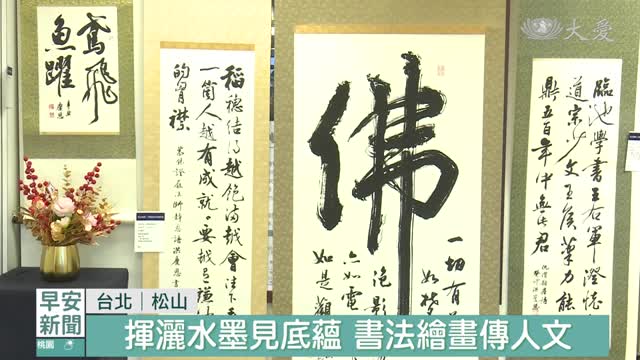 大愛
鳶飛
魚躍
稻穗結得越飽滿越會往下
一箇人越有成就要越有謙
的胸襟
佛
一切有
如夢
泡影
亦如電
如是觀
臨池學書王右軍澄懷
道宗少文王侯筆力能
鼎五百年中無此君
早安
新聞
桃園
台北 松山
揮灑水墨見底蘊 書法繪畫傳人文